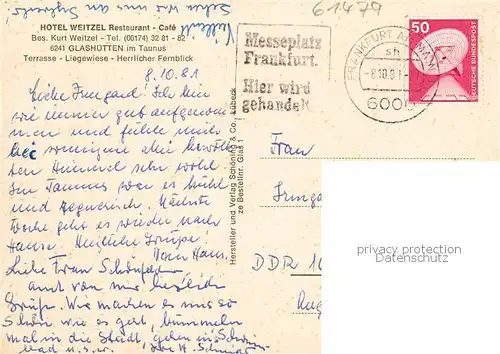 61479
HOTEL WEITZEL Restaurant - Café
Bes. Kurt Weitzel - Tel. (06174) 32 81 - 82
6241 GLASHÜTTEN im Taunus
Terrasse - Liegewiese - Herrlicher Fernblick
8.10.81
Liebe Irmgard! Ich bin
wie immer gut aufgenom
men und fühle mich
bei sonnigem aber bewölk
ten Himmel sehr wohl.
Im Taunus war es kühl
und regnerisch. Nächste
Woche geht es wieder nach
Hause. Herzliche Grüße
Dein Hans.
Liebe Frau
auch von mir herzliche
Grüße. Wir machen es uns so
schön wie es geht, bummeln
mal in die Stadt, gehen ins Schwimm
bad u.s.w.
Hersteller und Verlag Schöning & Co., Lübeck
Bestellnr. Glas 1
Messeplatz
Frankfurt.
Hier wird
gehandelt
FRANKFURT AM MAIN
sh
-8.10.81
6000
50
DEUTSCHE BUNDESPOST
Frau
Irmga
DDR 10
privacy protection
Datenschutz.